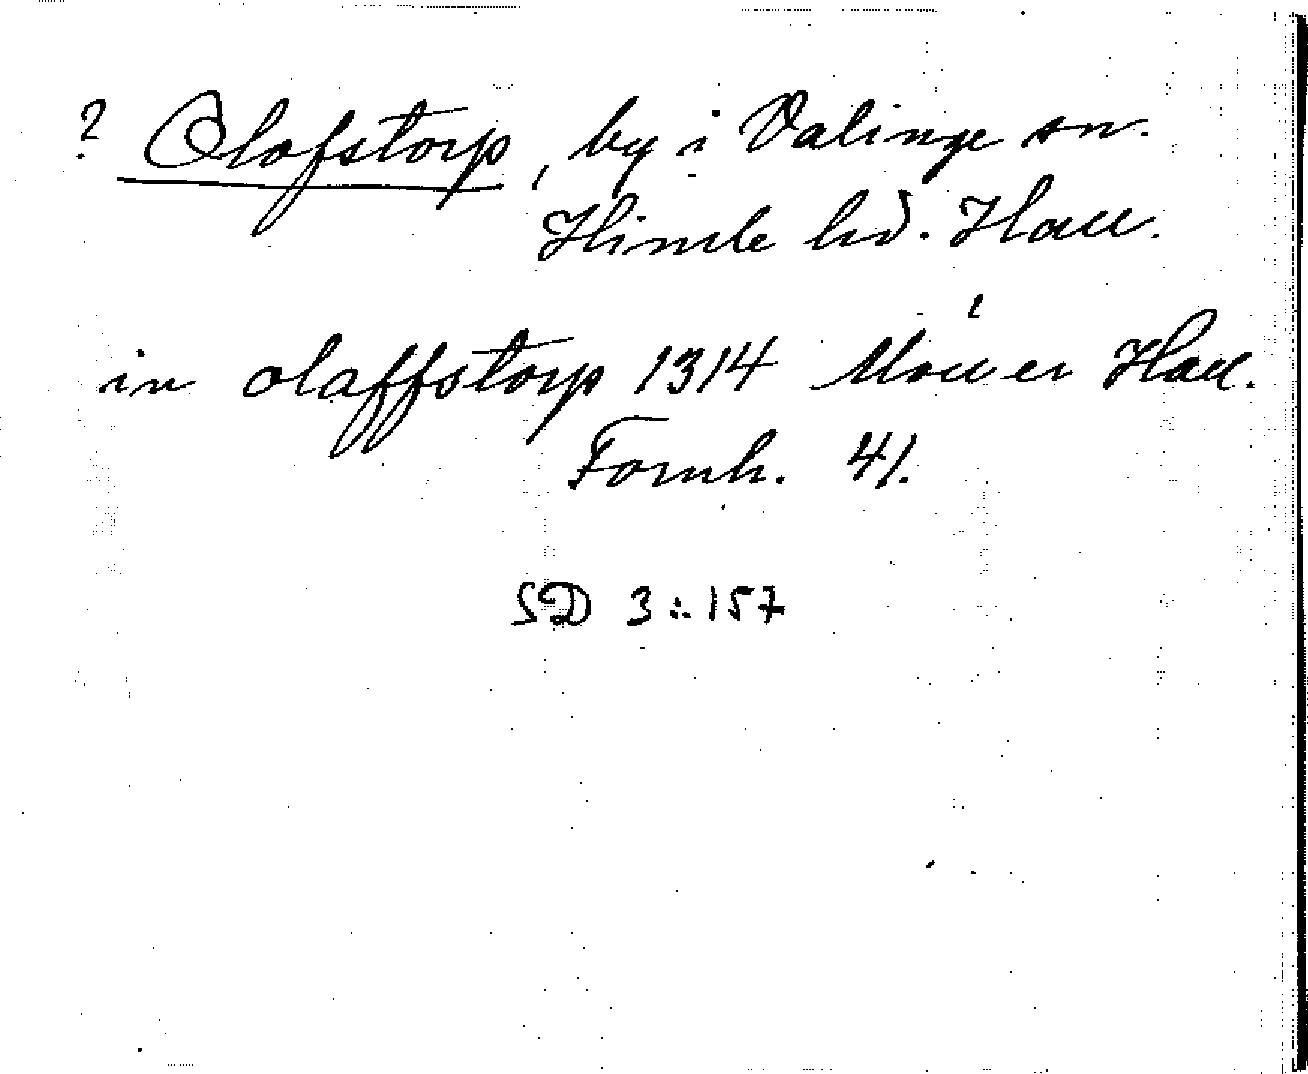 ? Olofstorp, by i Valinge sn.
Himle hd. Hall.
in olaffstorp 1314 Möller Hall.
Fornh. 41.
SD 3:157